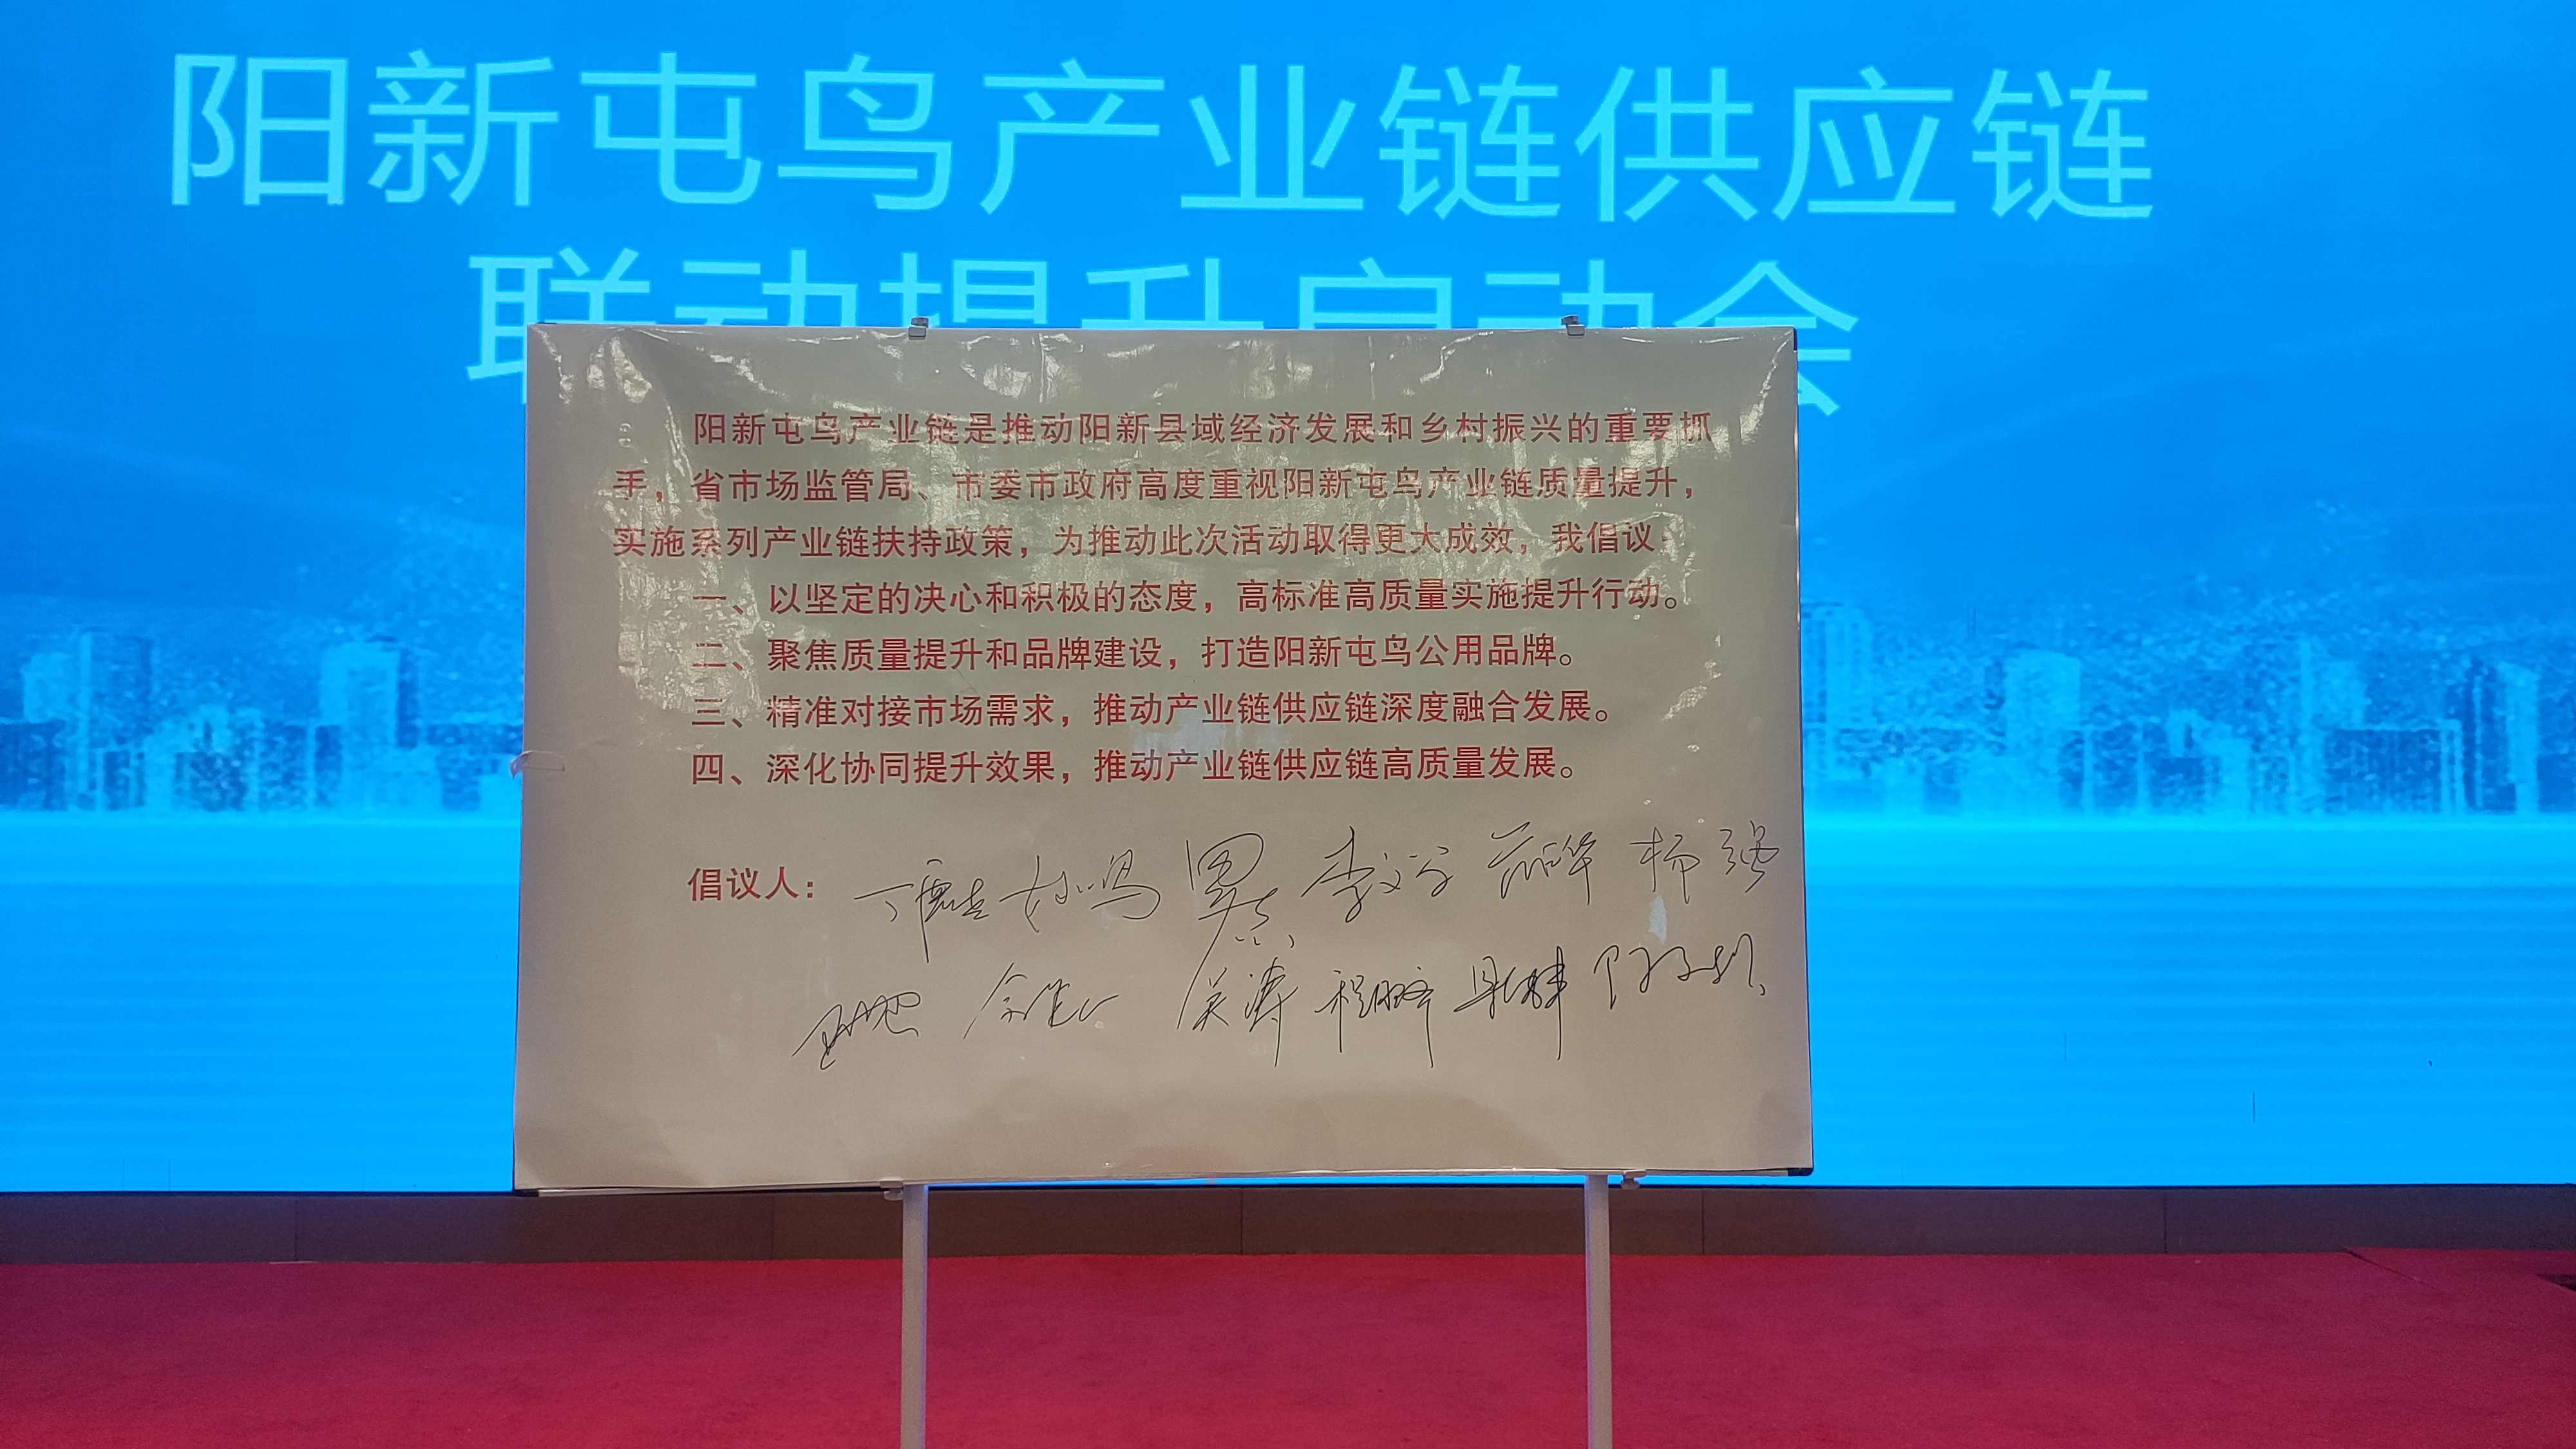 阳新屯鸟产业链供应链
联动提升启动会
阳新屯鸟产业链是推动阳新县域经济发展和乡村振兴的重要抓
手，省市场监管局、市委市政府高度重视阳新屯鸟产业链质量提升，
实施系列产业链扶持政策，为推动此次活动取得更大成效，我倡议：
一、以坚定的决心和积极的态度，高标准高质量实施提升行动。
二、聚焦质量提升和品牌建设，打造阳新屯鸟公用品牌。
三、精准对接市场需求，推动产业链供应链深度融合发展。
四、深化协同提升效果，推动产业链供应链高质量发展。
倡议人： 杨强